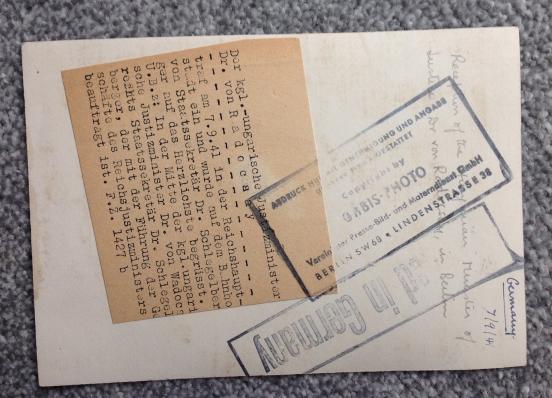 Der kgl.-ungarische Justizminister
Dr. von R a d o c s a y
traf am 7.9.41 in der Reichshaupt-
stadt ein und wurde auf dem Bahnho
von Staatssekretär Dr. Schlegelber
ger auf das Herzlichste begrüsst.
U.B.z: In der Mitte der kgl.-ungari
sche Justizminister Dr. von Radocs
rechts Staatssekretär Dr. Schlegel
berger, der mit der Führung der G
schäfte des Reichsjustizministers
beauftragt ist. P.Z. 1427 b
ABDRUCK NUR MIT GENEHMIGUNG UND ANGABE
Copyright by
ORBIS-PHOTO
Vereinigter Presse-Bild- und Maternd­ienst GmbH
BERLIN SW68 • LINDENSTRASSE 38
in Germany
Reception of the Hungarian Minister of
Justice Dr von in Berlin
Germany
7/9/41